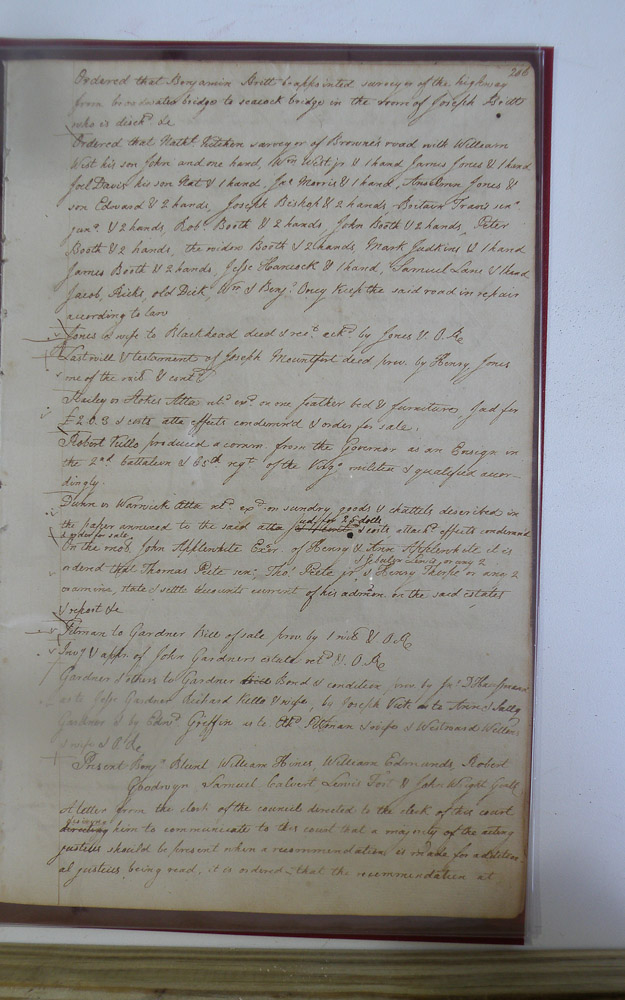 206
Ordered that Benjamin Britt be appointed surveyor of the highway
from broadwater bridge to seacock bridge in the room of Joseph Britt
who is disch.d &c
Ordered that Nath.l Kitchen surveyor of Browne's road with William
West his son John and one hand, Wm West jr & 1 hand James Jones & 1 hand
Joel Davis his son Nat & 1 hand, Jno Morris & 1 hand, Anselmn Jones &
son Edward & 2 hands, Joseph Bishop & 2 hands, Britain Travis senr.
junr. & 2 hands, Rob.t Booth & 2 hands, John Booth & 2 hands, Peter
Booth & 2 hands, the widow Booth & 2 hands, Mark Judkins & 1 hand
James Booth & 2 hands, Jesse Hancock & 1 hand, Samuel Lane & 1 hand
Jacob, Ricks, old Dick, Wm & Benj.a Oney keep the said road in repair
according to law
Jones & wife to Blackhead deed & rect. ackd. by Jones & O.R.
Last will & testament of Joseph Mountfort decd prov. by Henry Jones
one of the witn. & contd.
Hailey vs Stokes Atta. retd. exd. on one feather bed & furniture, Jud for
£2.0.3 & costs atta effects condemn'd & order for sale.
Robert Kello produced a comm. from the Governor as an Ensign in
the 2nd. battalion & 65th regt. of the Virga. militia & qualified accor-
dingly.
Dunn vs Warwick Atta. retd. exd. on sundry goods & chattels described in
the paper annexed to the said atta jud for 28 dolls & costs attachd. effects condemnd
& order for sale
On the mo. of John Applewhite Exor. of Henry & Ann Applewhite it is
& or any 2
ordered that Thomas Pete senr. Tho. Pete jr. & Henry Thorpe or any 2
examine, state & settle accounts current of his admon. on the said estates
& report &c
Pitman to Gardner Bill of sale prov. by 1 wit. & O.R.
Invy. & appr. of John Gardners estate retd. & O.R.
Gardner & others to Gardner Bond & condition prov. by Jno. D. Haussmann
as to Jesse Gardner Richard Kello & wife, by Joseph Vick as to Ann & Sally
Gardner & by Edwd. Griffin as to Pitman & wife & Westward
& wife &
Present Benj.a Blunt William Hines, William Edmunds, Robert
Goodwyn Samuel Calvert Lewis Fort & John Wright Gent.
A letter from the clerk of the council directed to the clerk of this court
desiring
directing him to communicate to this court that a majority of the acting
justices should be present when a recommendation is made for addition
al justices being read, it is ordered that the recommendation at